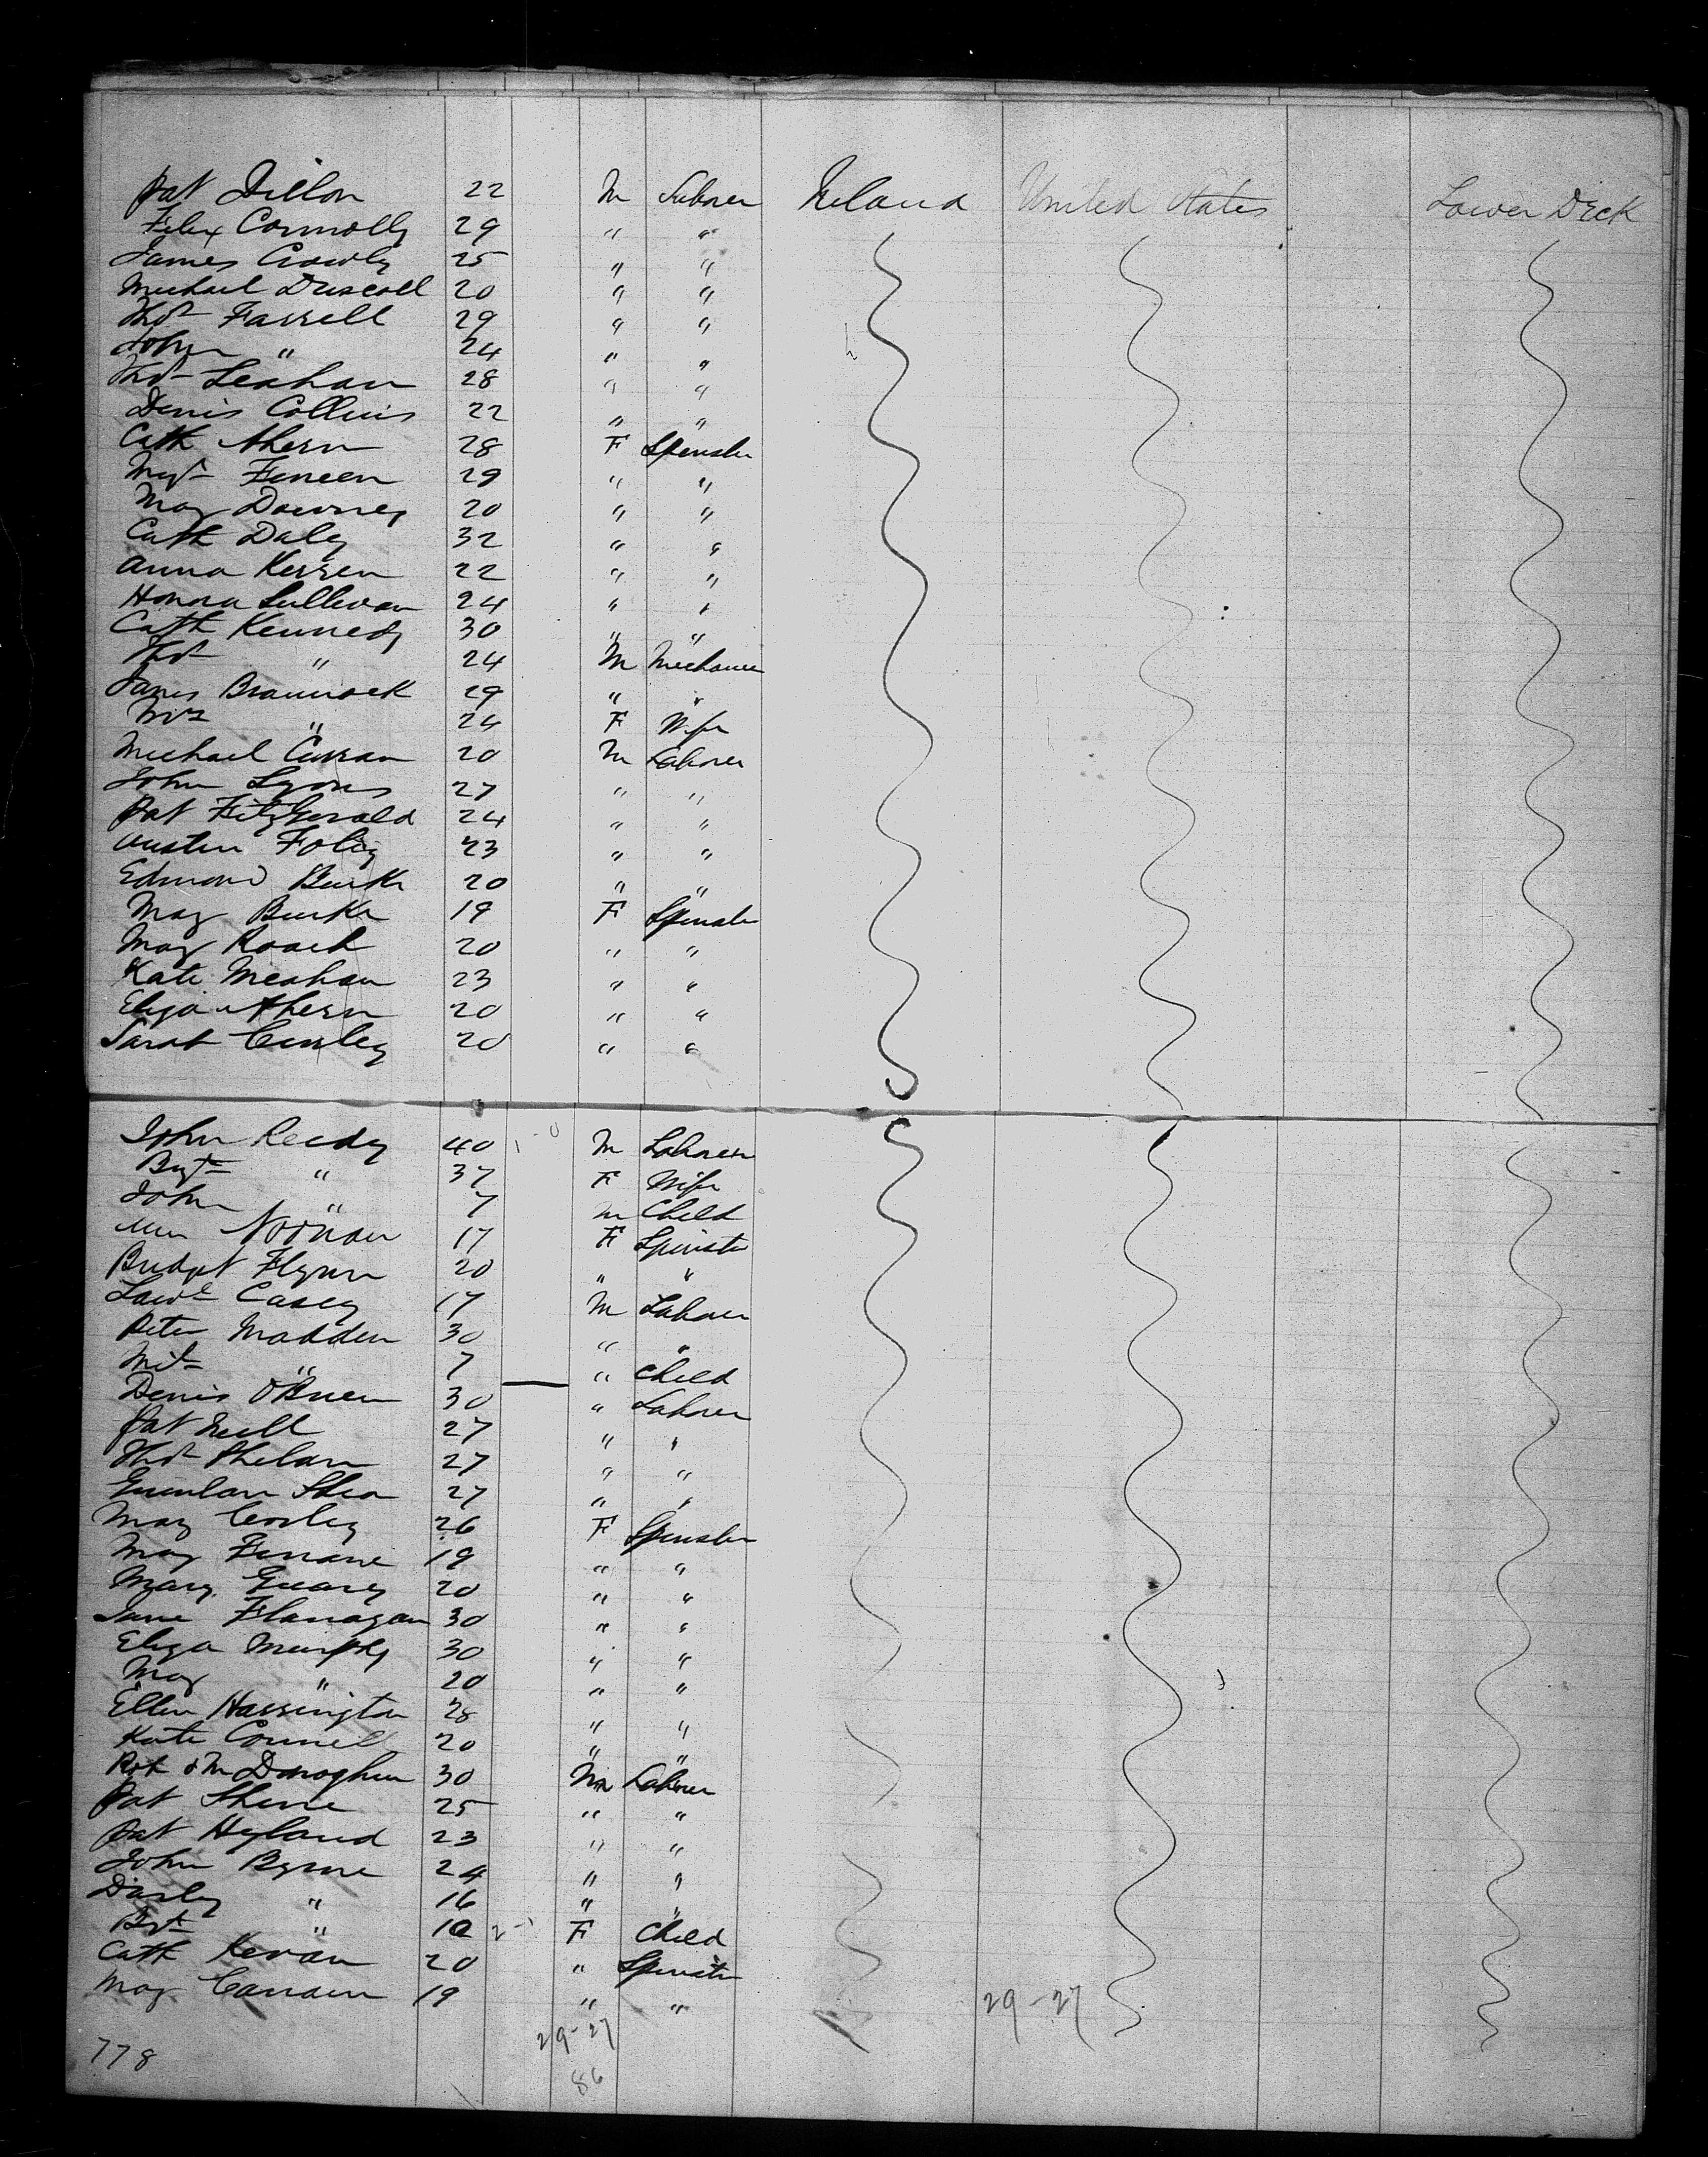 Pat Dillon 22 M Laborer Ireland United States Lower Deck
Felix Connolly 29 " "
James Crowly 25 " "
Michael Driscoll 20 " "
Thos Farrell 29 " "
John " 24 " "
Thos Leahan 28 " "
Denis Collins 22 " "
Cath Ahern 28 F Spinster
Mgt Fineen 29 " "
May Downey 20 " "
Cath Daly 32 " "
Anna Kerren 22 " "
Honora Sullivan 24 " "
Cath Kennedy 30 " "
Thos " 24 M Mechanic
James Brannock 29 " "
Mrs " 24 F Wife
Michael Curran 20 M Laborer
John Lyons 27 " "
Pat FitzGerald 24 " "
Austin Foley 23 " "
Edmond Burke 20 " "
May Burke 19 F Spinster
May Roach 20 " "
Kate Meahan 23 " "
Eliza Ahern 20 " "
Sarah Conley 20 " "
John Reedy 40 M Laborer
Bgt " 37 F Wife
John " 7 M Child
Ann Noonan 17 F Spinster
Bridget Flynn 20 " "
Lawce Casey 17 M Laborer
Peter Madden 30 " "
" 7 " Child
Denis OBrien 30 " Laborer
Pat Neill 27 " "
Thos Phelan 27 " "
Shea 27 " "
May Conley 26 F Spinster
May Finnane 19 " "
Mary Geary 20 " "
Jane Flanagan 30 " "
Eliza Murphy 30 " "
May " 20 " "
Ellen Harrington 28 " "
Kate Connell 20 " "
Donoghue 30 M Laborer
Pat Shene 25 " "
Pat Hyland 23 " "
John Byrne 24 " "
Darby " 16 " "
Bgt " 10 F Child
Cath Kevan 20 " Spinster
May Canavan 19 " "
29-27 29-27
778 86